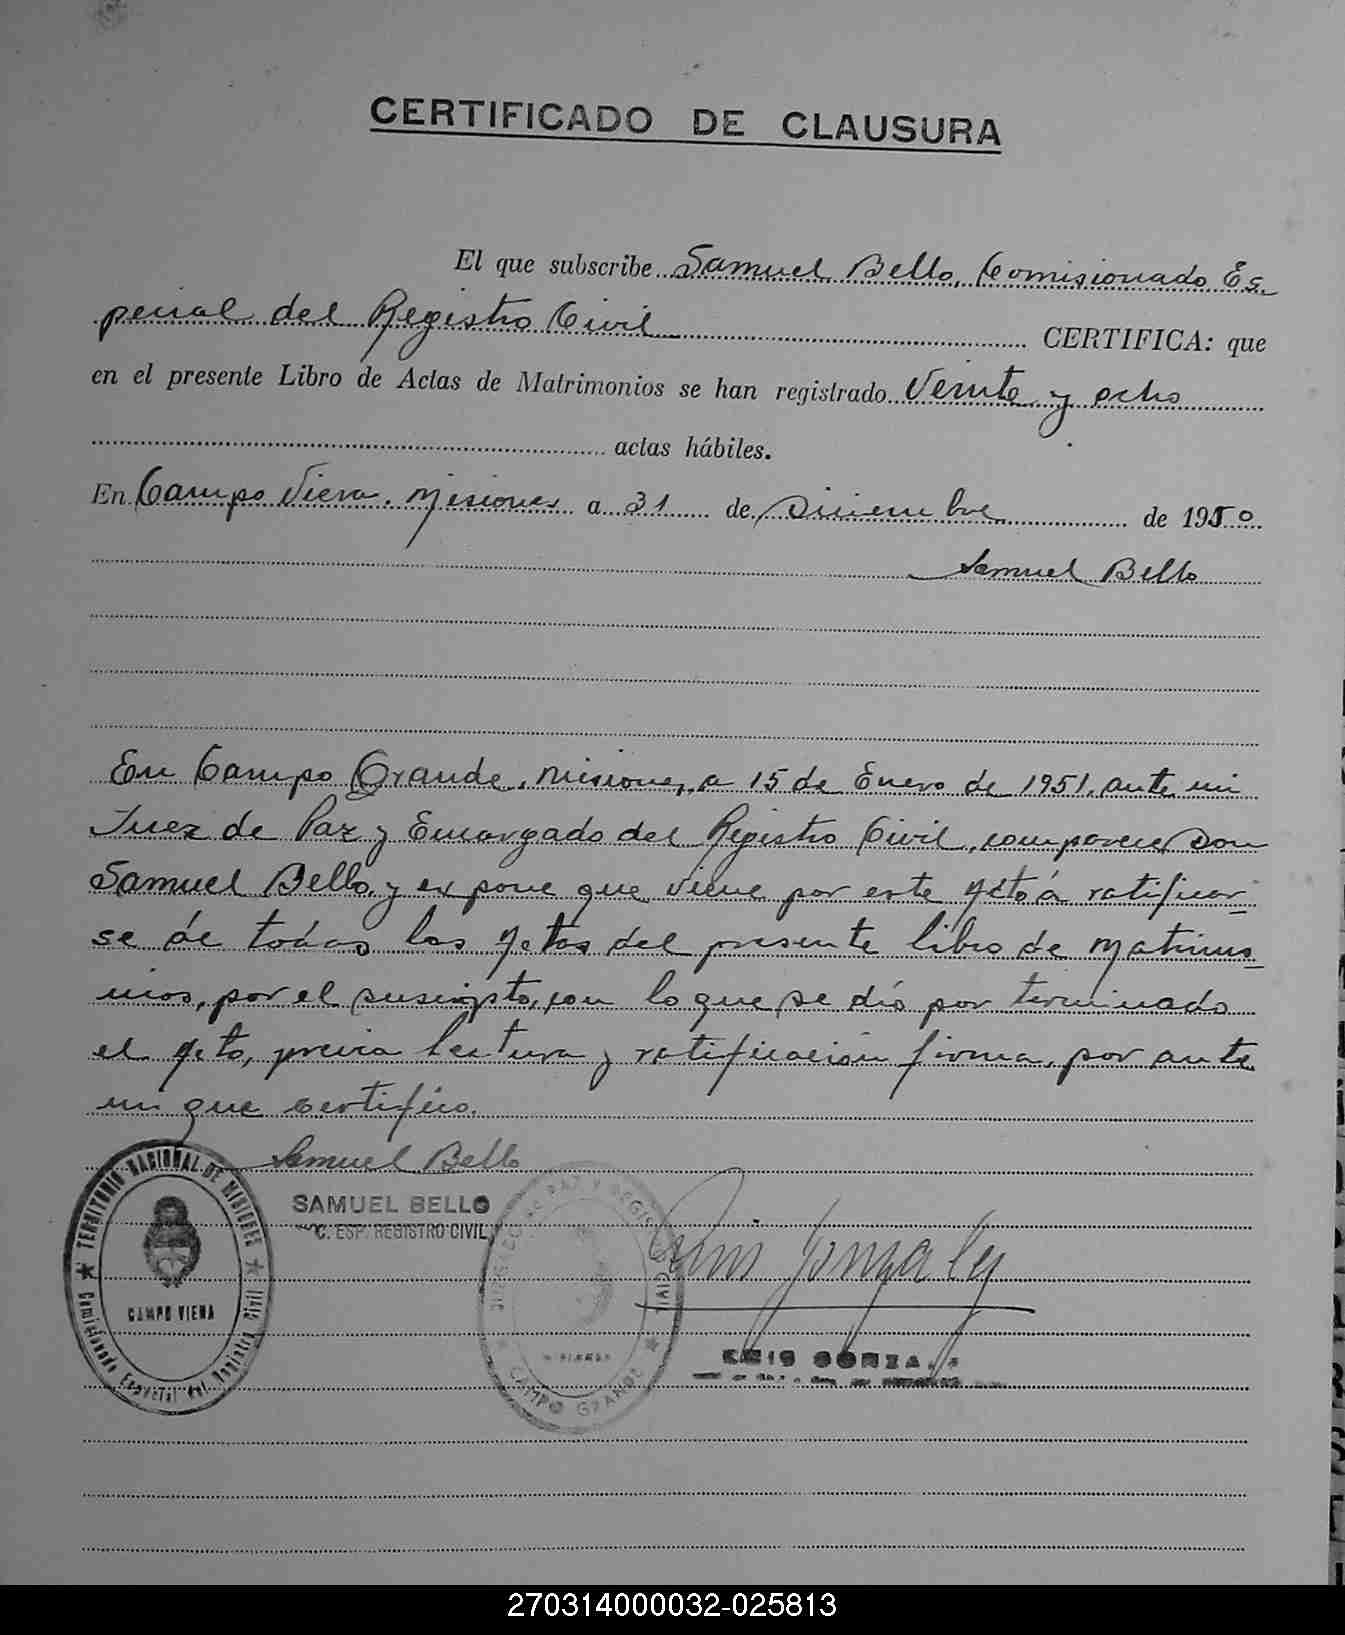 CERTIFICADO DE CLAUSURA
El que subscribe Samuel Bello, Comisionado Es-
pecial del Registro Civil CERTIFICA: que
en el presente Libro de Actas de Matrimonios se han registrado Veinte y ocho
actas hábiles.
En Campo Viera. Misiones a 31 de Diciembre de 1950
Samuel Bello
En Campo Grande, Misiones, a 15 de Enero de 1951, ante mi
Juez de Paz y Encargado del Registro Civil, comparece Don
Samuel Bello, y expone que viene por este Acto á ratificar-
se de todas las Actas del presente libro de Matrimo-
nios, por el suscripto, con lo que se dió por terminado
el Acto, previa lectura y ratificación firma, por ante
mi que certifico.
Samuel Bello
SAMUEL BELLO
C. ESP. REGISTRO CIVIL
TERRITORIO NACIONAL DE MISIONES
CAMPO VIERA
Comisionado Especial del Registro Civil
JUZGADO DE PAZ Y REGISTRO CIVIL
MISIONES
CAMPO GRANDE
Luis Gonzalez
LUIS GONZA
270314000032-025813